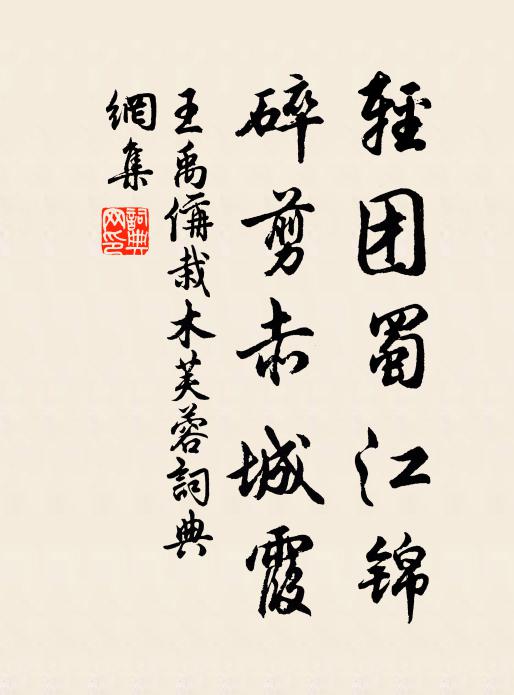 輕团蜀江锦
碎剪赤城霞
王禹偁栽木芙蓉詞典
網集
詞典
网印